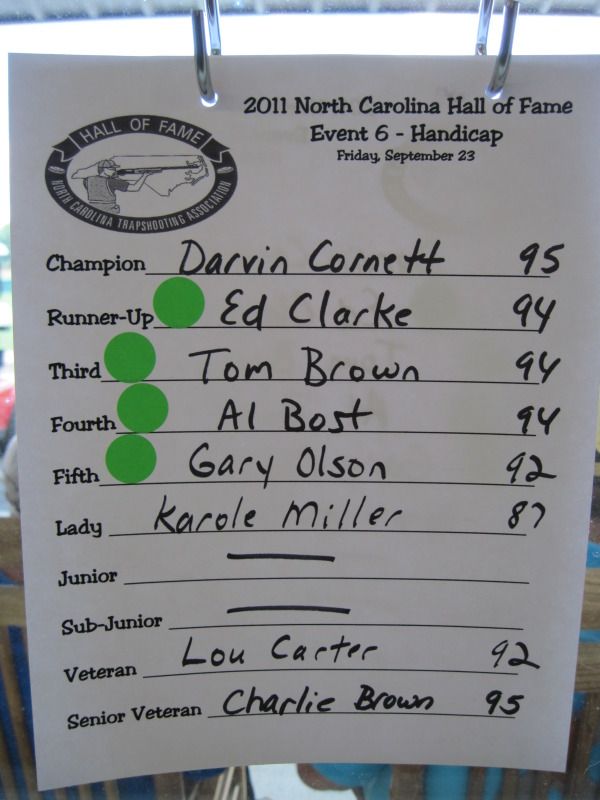 2011 North Carolina Hall of Fame
Event 6 - Handicap
Friday, September 23
HALL OF FAME
NORTH CAROLINA TRAPSHOOTING ASSOCIATION
Champion Darvin Cornett 95
Runner-Up Ed Clarke 94
Third Tom Brown 94
Fourth Al Bost 94
Fifth Gary Olson 92
Lady Karole Miller 87
Junior
Sub-Junior
Veteran Lou Carter 92
Senior Veteran Charlie Brown 95